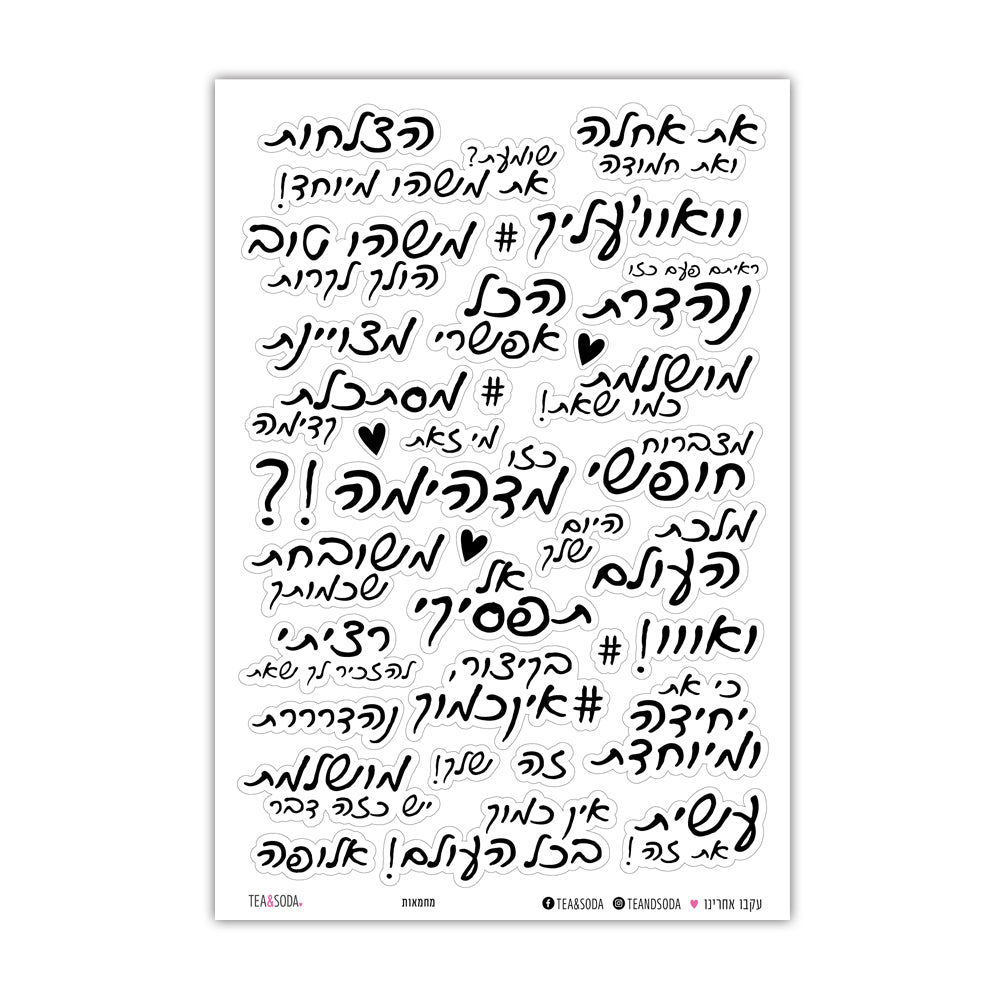 את אחלה
ואת חמודה
הצלחות
שומעת?
את משהו מיוחד!
וואוו'עליך
# משהו טוב
הולך לקרות
ראיתם פעם כזו
נהדרת
הכל
אפשרי
מצויינת
מושלמת
כמו שאת!
# מסתכלת
קדימה
מי זאת
כזו
מדהימה !?
מצברוח
חופשי
מלכת
העולם
היום
שלך
משובחת
שכמותך
אל
תפסיקי
ואווו!
#
רציתי
להזכיר לך שאת
בקיצור,
#אינכמוך
כי את
יחידה
ומיוחדת
נהדרררת
זה שלך!
מושלמת
יש כזה דבר
אין כמוך
בכל העולם!
עשית
את זה!
אלופה
TEA&SODA
מחמאות
TEA&SODA TEANDSODA עקבו אחרינו